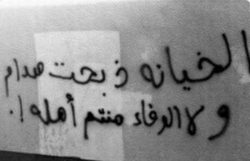 الخيانه ذبحت هدام
ولا الوفاء منتم أهله !.